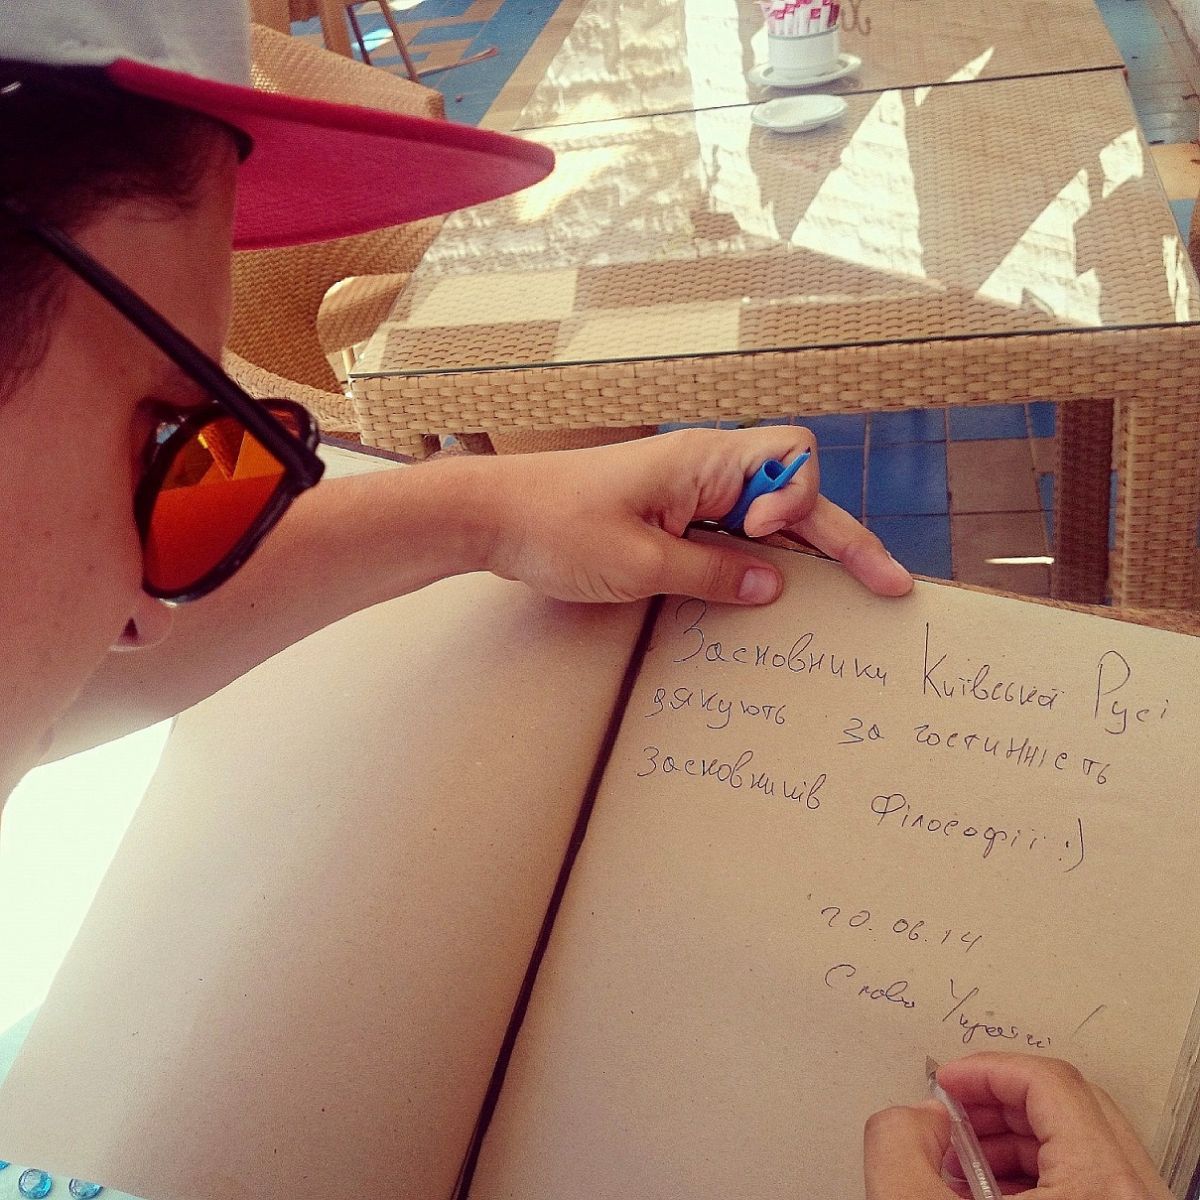 Засновники Київської Русі
дякують за гостинність
засновників Філософії :)
20.06.14
Слава Україні!